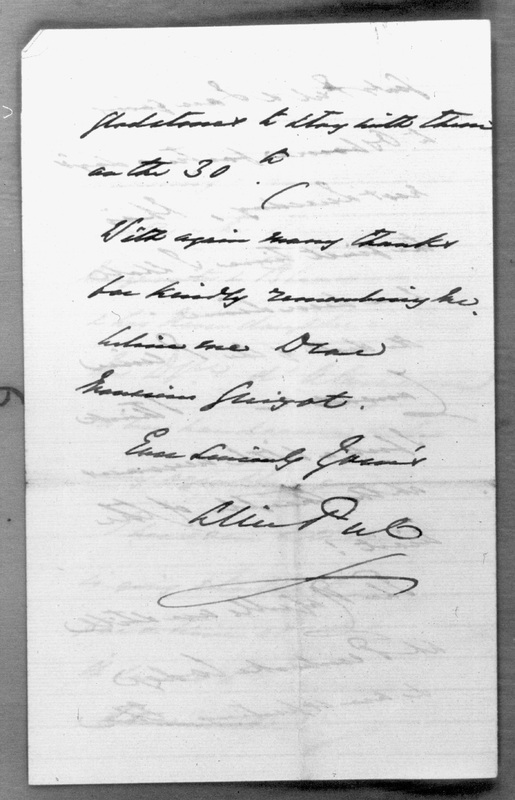 Gladstones to stay with them
on the 30th
With again many thanks
for kindly remembering me.
believe me Dear
Monsieur Guizot.
Ever Sincerely Yours